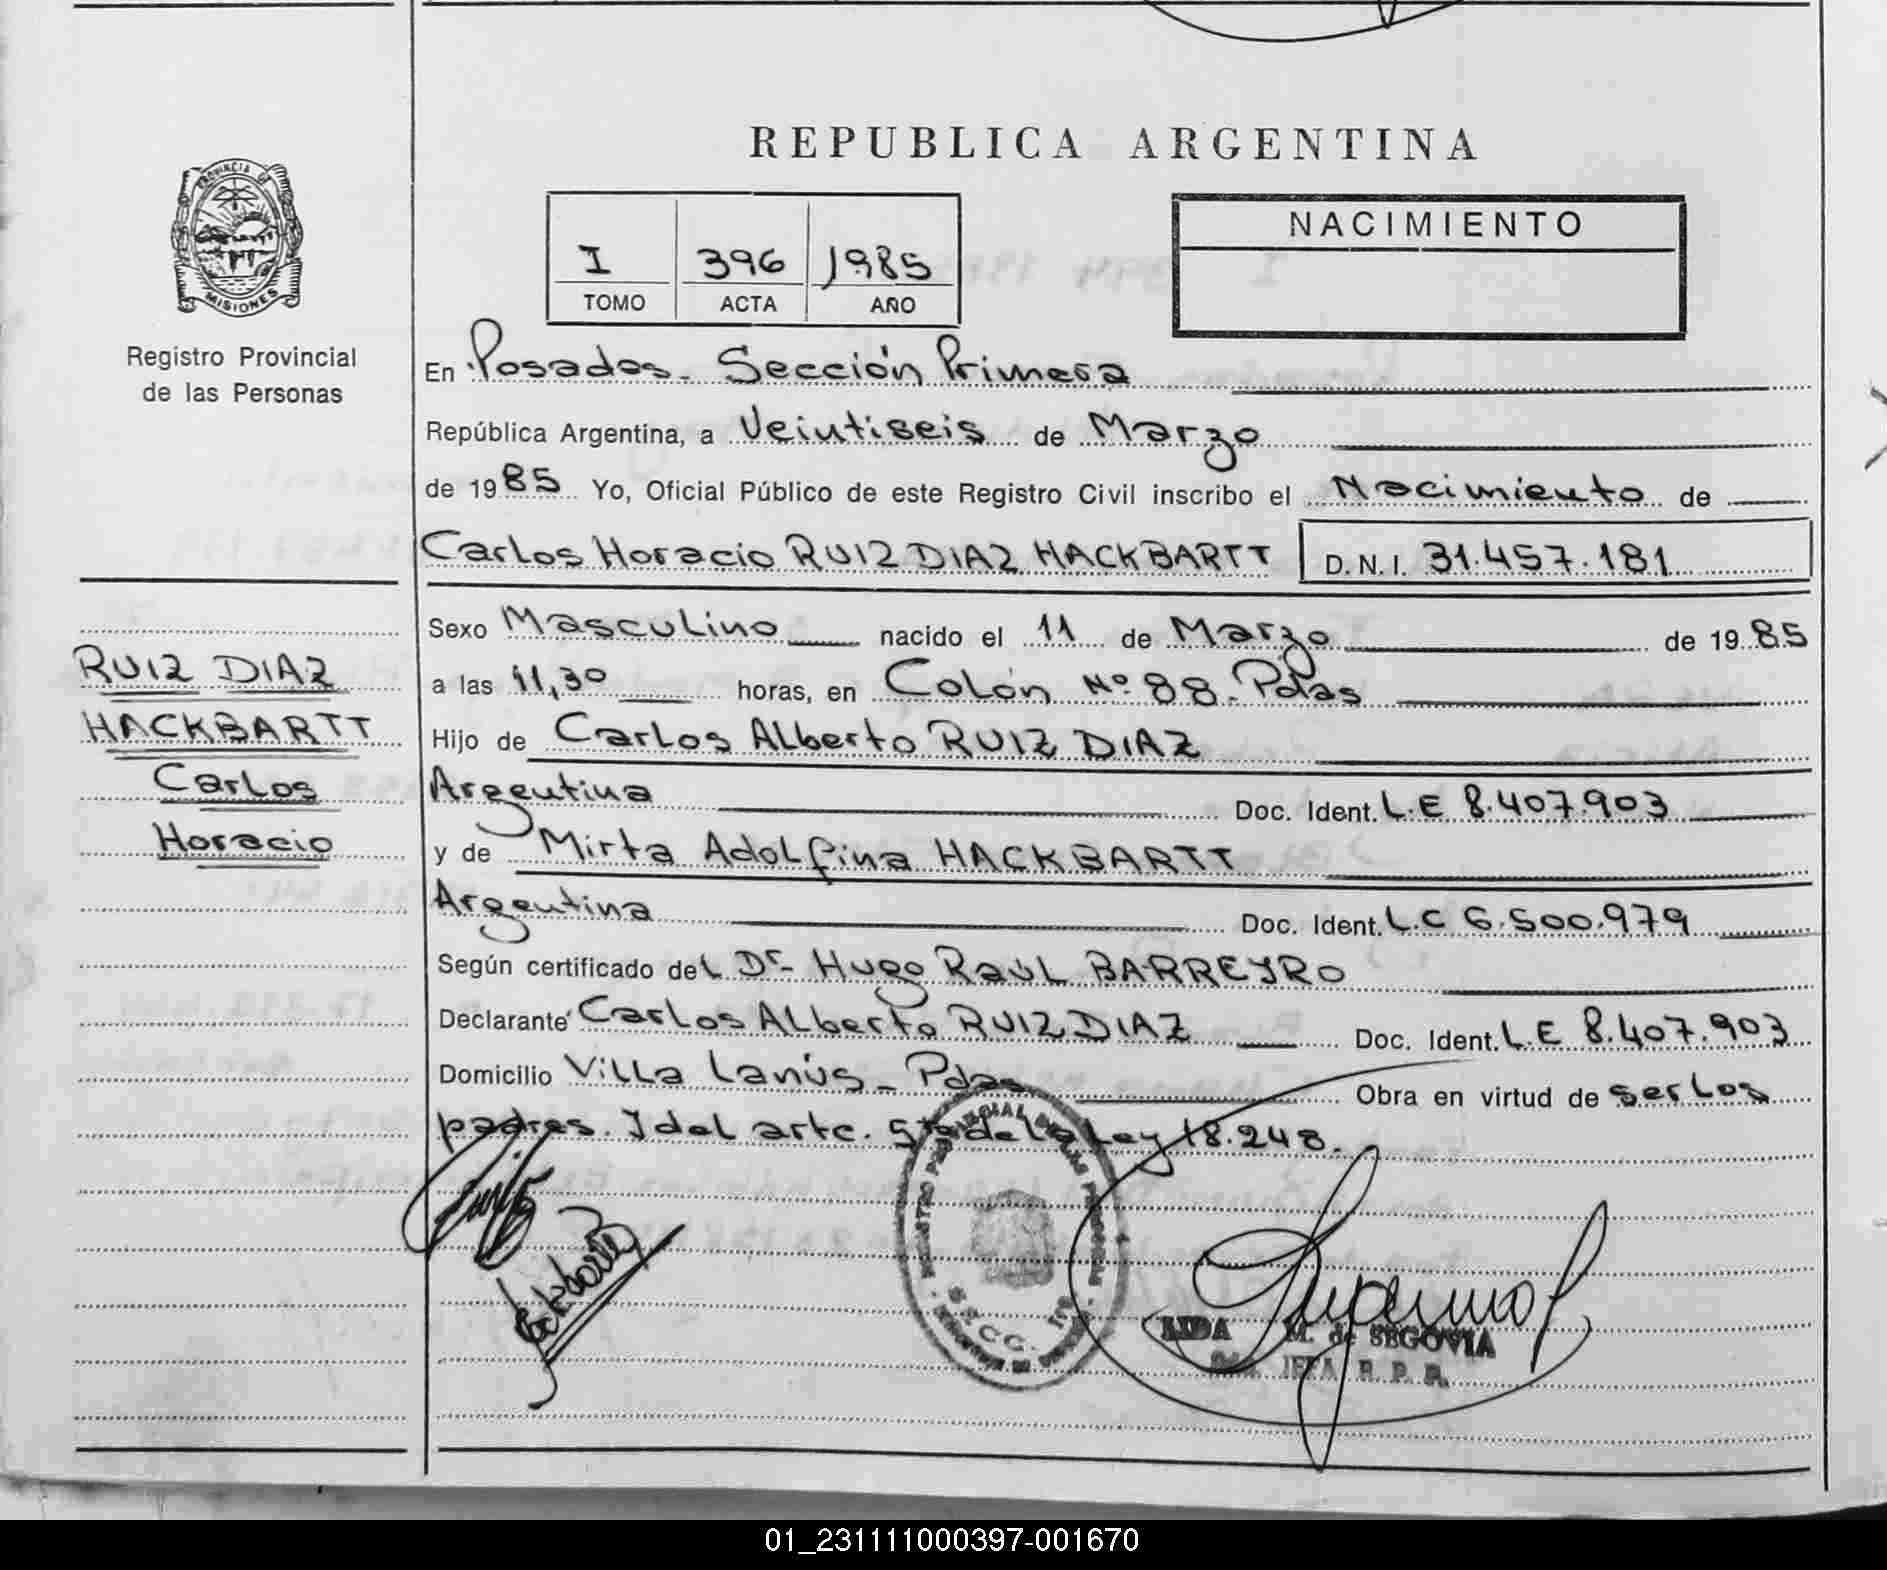 REPUBLICA ARGENTINA
PROVINCIA DE
MISIONES
Registro Provincial
de las Personas
NACIMIENTO
I 396 1985
TOMO ACTA AÑO
En Posadas. Sección Primera
República Argentina, a Veintiseis de Marzo
de 1985 Yo, Oficial Público de este Registro Civil inscribo el Nacimiento de
Carlos Horacio RUIZ DIAZ HACKBARTT D.N.I. 31.457.181
RUIZ DIAZ
HACKBARTT
Carlos
Horacio
Sexo Masculino nacido el 11 de Marzo de 1985
a las 11,30 horas, en Colón Nº 88. Pdas
Hijo de Carlos Alberto RUIZ DIAZ
Argentina Doc. Ident. L.E 8.407.903
y de Mirta Adolfina HACKBARTT
Argentina Doc. Ident. L.C 6.500.979
Según certificado del Dr- Hugo Raúl BARREYRO
Declarante Carlos Alberto RUIZ DIAZ Doc. Ident. L.E 8.407.903
Domicilio Villa Lanús - Pdas Obra en virtud de ser los
padres. Y del artc. 5to de la Ley 18.248.
LIDA M. de SEGOVIA
JEFA R. P. P.
01_231111000397-001670